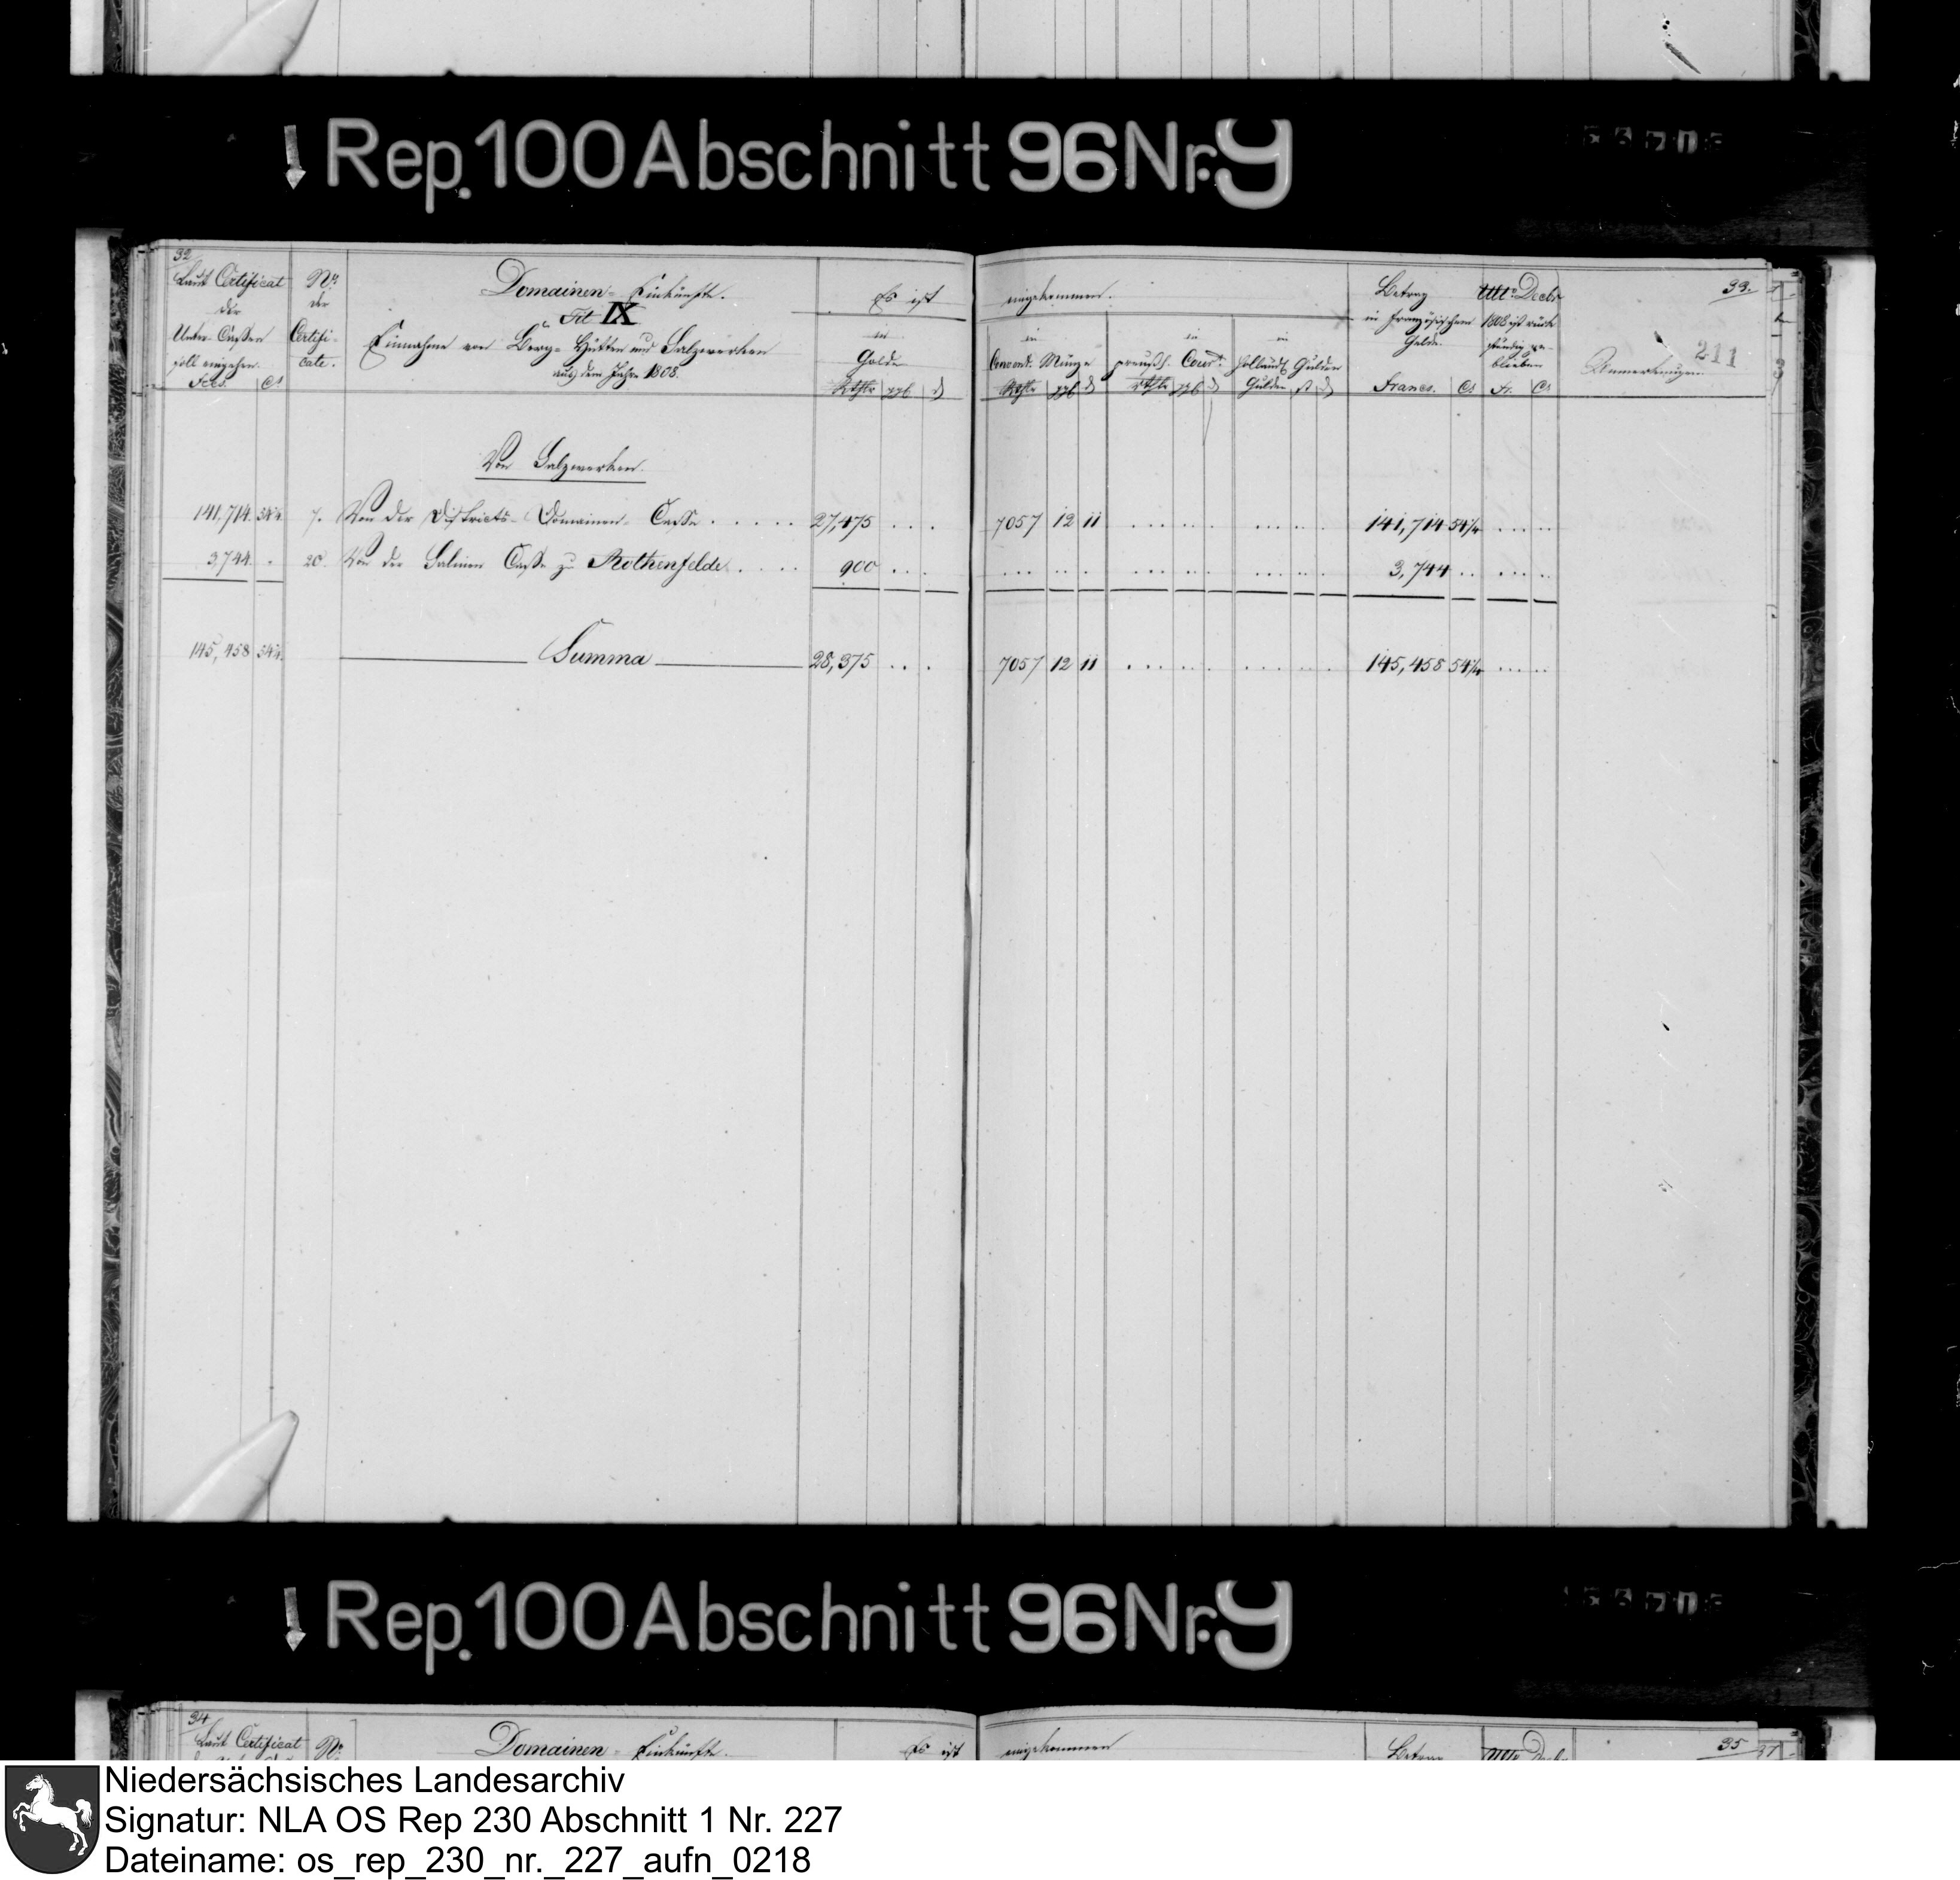 Rep. 100 Abschnitt 96 Nr. 9
32
Laut Certificat
der
Unter-Cassen
soll eingehen.
Frcs. Cs
No.
der
Certifi-
cate.
Domainen-Einkünfte.
Tit IX
Einnahme von Berg- Hütten und Salzwerken
aus dem Jahre 1808.
Es ist
in
Golde
Rthlr ggl d
eingekommen.
in
Convent. Münze
Rthlr ggl d
in
preußs. Cour.
Rthlr ggl d
in
Holländs Gulden
Gulden st d
Betrag
in Französischem
Gelde.
Francs. Cs
Ulto Decbr
1808 ist rück-
ständig ge-
blieben
Fr. Cs
33.
211
Anmerkungen
Von Salzwerken.
141,714. 54¼ 7. Von der Districts-Domainen-Casse . . . . . 27,475 . . . 7057 12 11 . . . . . . . . . . . 141,714 54¼ . . . . .
3,744. - 20. Von der Salinen Casse zu Rothenfelde . . . . 900 . . . . . . . . . . . . . . . . . . . . 3,744 . . . . . . .
145,458 54¼ Summa 28,375 . . . 7057 12 11 . . . . . . . . . . . . 145,458 54¼ . . . . .
Rep. 100 Abschnitt 96 Nr. 9
34
Laut Certificat
No.
Domainen-Einkünfte.
Es ist
eingekommen
Betrag
Ulto Decbr
35
Niedersächsisches Landesarchiv
Signatur: NLA OS Rep 230 Abschnitt 1 Nr. 227
Dateiname: os_rep_230_nr._227_aufn_0218